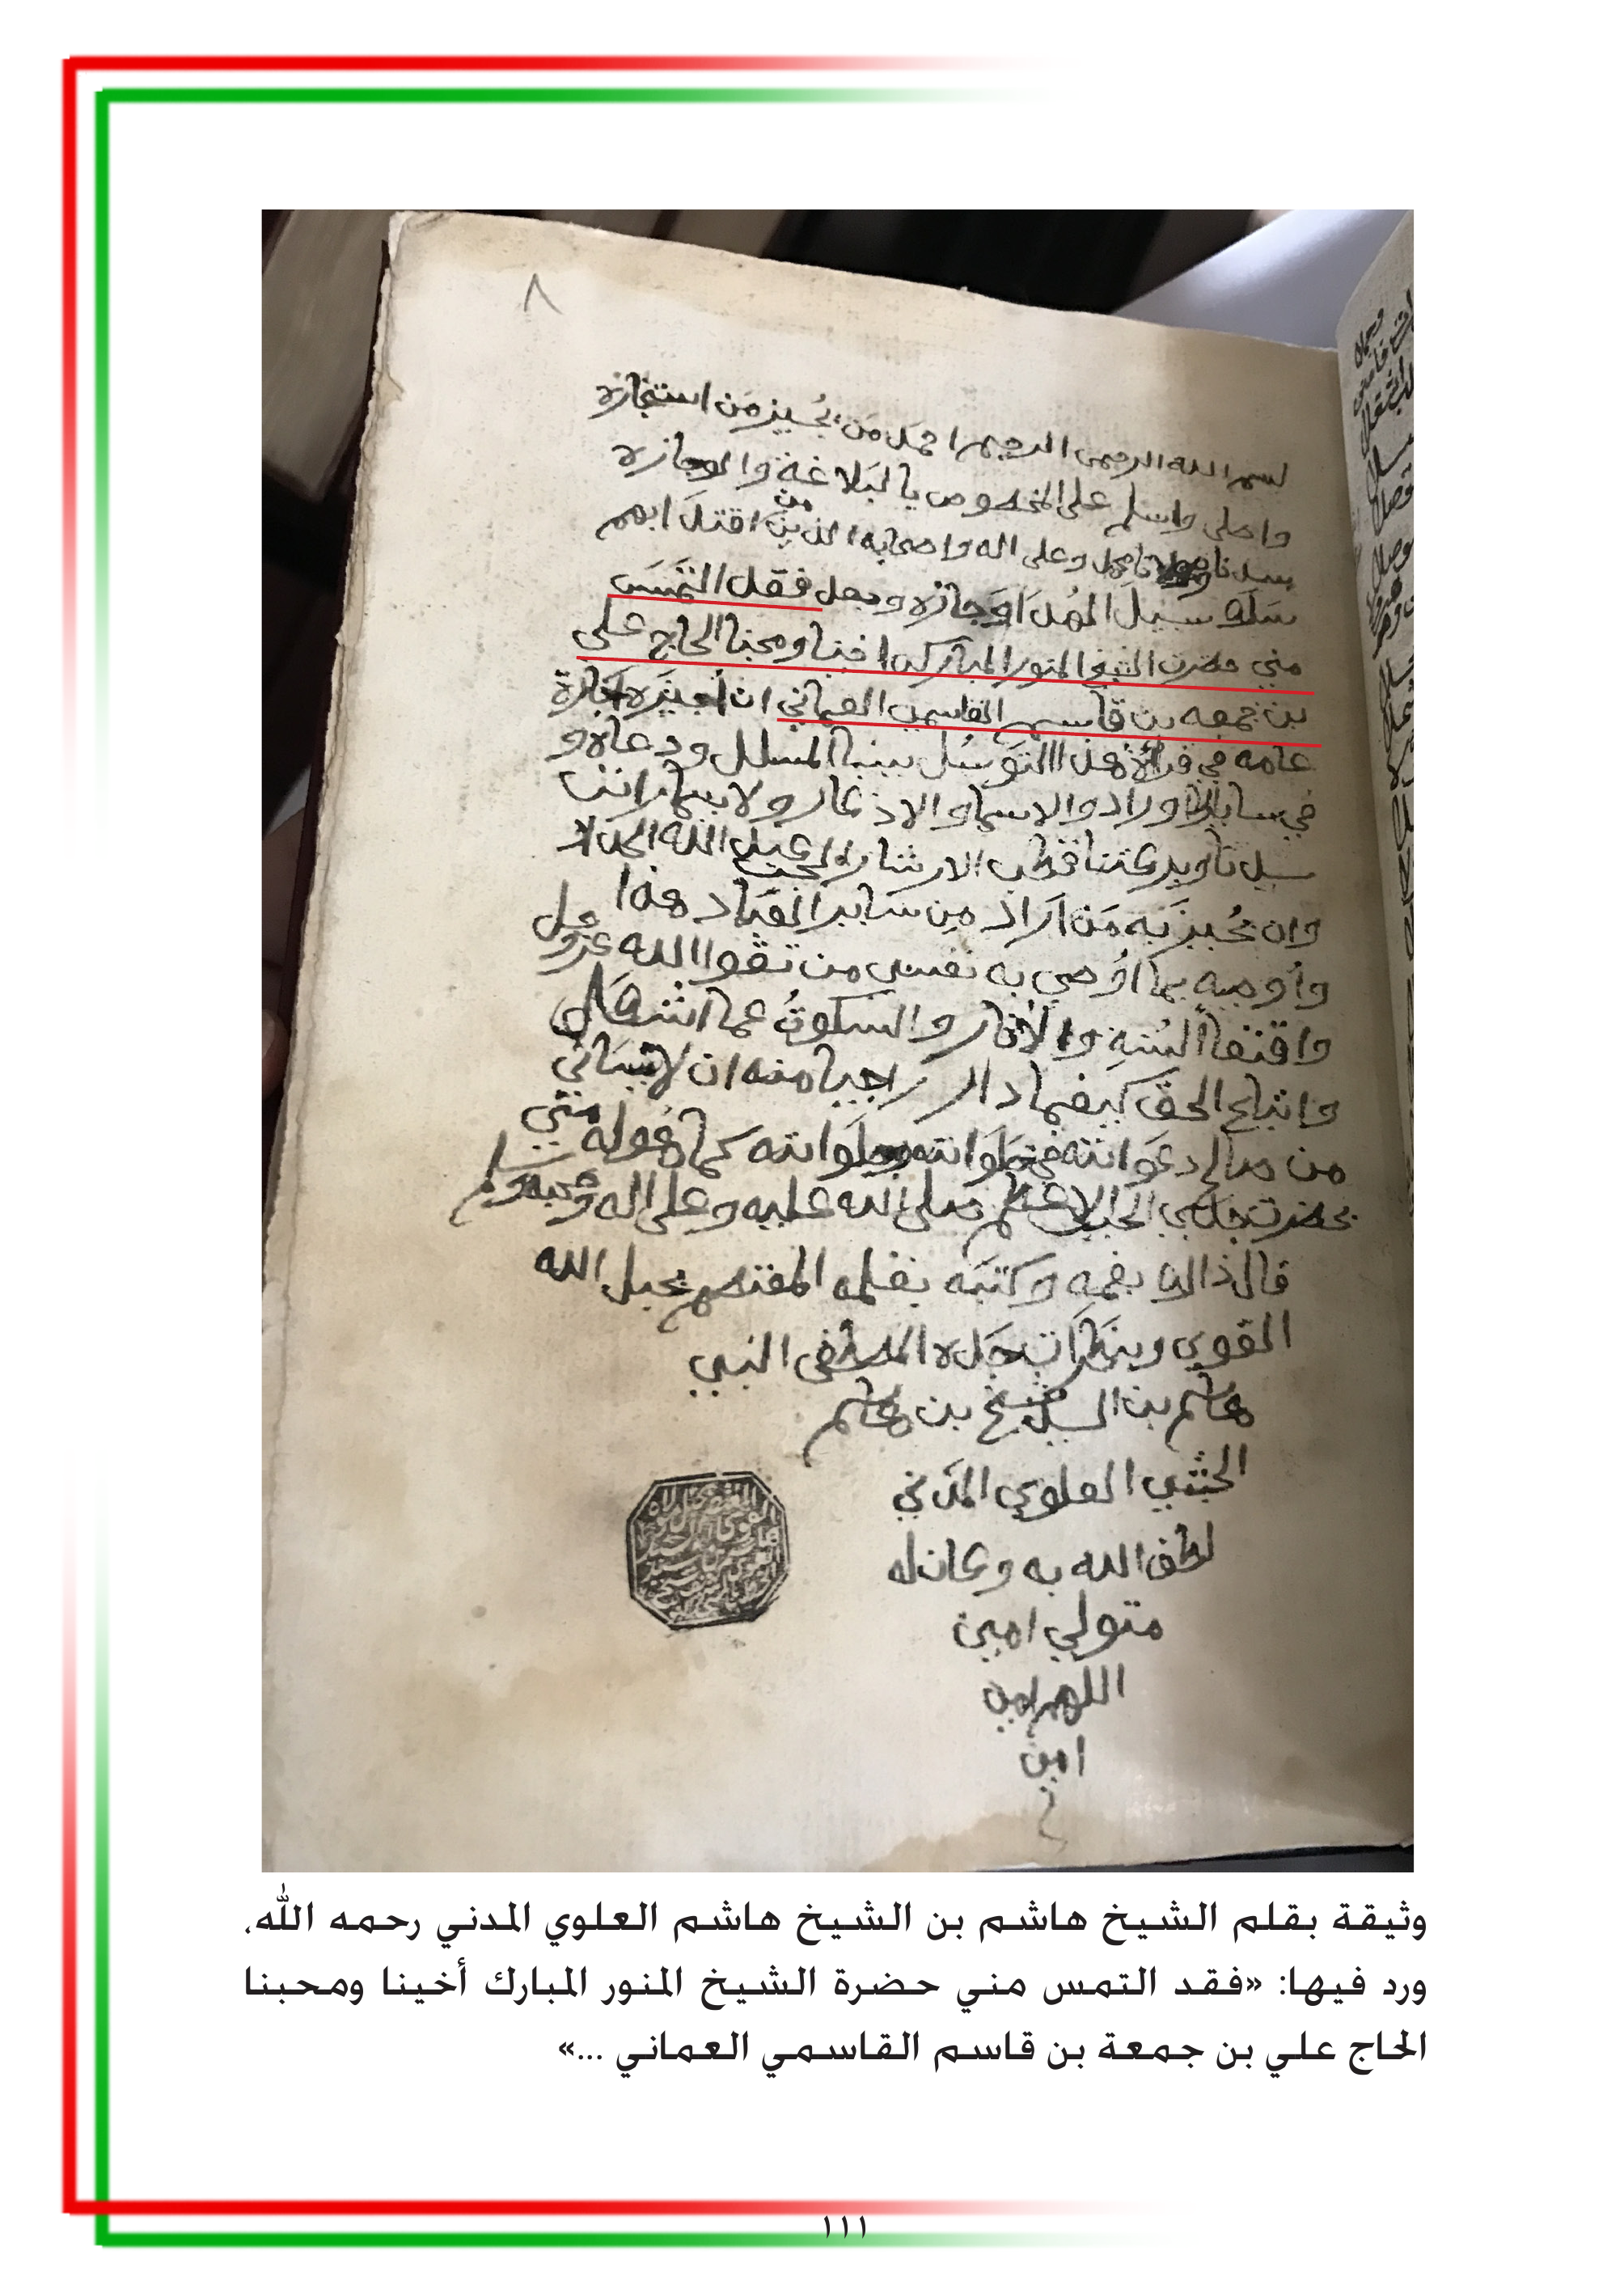 ٨
بسم الله الرحمن الرحيم احمد من يُجيز من استجازه
واصلي واسلم على المخصوص بالبلاغة والوجازه
سيدنا محمد وعلى اله واصحابه الذين من اقتدا بهم
سلك سبيل الهدا وجازه وبعد فقد التمس
مني حضرت الشيخ المنور المبارك اخينا ومحبنا الحاج على
بن جمعه بن قاسم القاسمي العماني ان أجيزه اجازة
عامه في قرائة هذا التوسُل ودعاه و
في ساير الاوراد والاسما والاذكار ولاسيما راتب
سيدنا وبركتنا قطب الارشاد الحبيب عبد الله الحداد
وان يُجيز به من اراد من ساير العباد هذا
واُوصيه بما اُوصي به نفسي من تقوا الله عزوجل
واقتفا السُنهِ والأثار والسكوتُ عما
واتباع الحق كيفما دار راجيا منه ان لاينساني
من صالح دعواته في خلواته وجلواته كما هُوله مني
بحضرت جدي الحبيب الاعظم صلى الله عليه وعلى اله وصحبه وسلم
قال ذالك بفمه وكتبه بقلمه المعتصم بحبل الله
القوي وبنظرات جده المصطفى النبي
هاشم بن السيد شيخ بن هاشم
الحبشي العلوي المدني
لطف الله به وكان له
متولي امين
اللهم امين
امين
وثيقة بقلم الشيخ هاشم بن الشيخ هاشم العلوي المدني رحمه الله،
ورد فيها: «فقد التمس مني حضرة الشيخ المنور المبارك أخينا ومحبنا
الحاج علي بن جمعة بن قاسم القاسمي العماني ...»
١١١